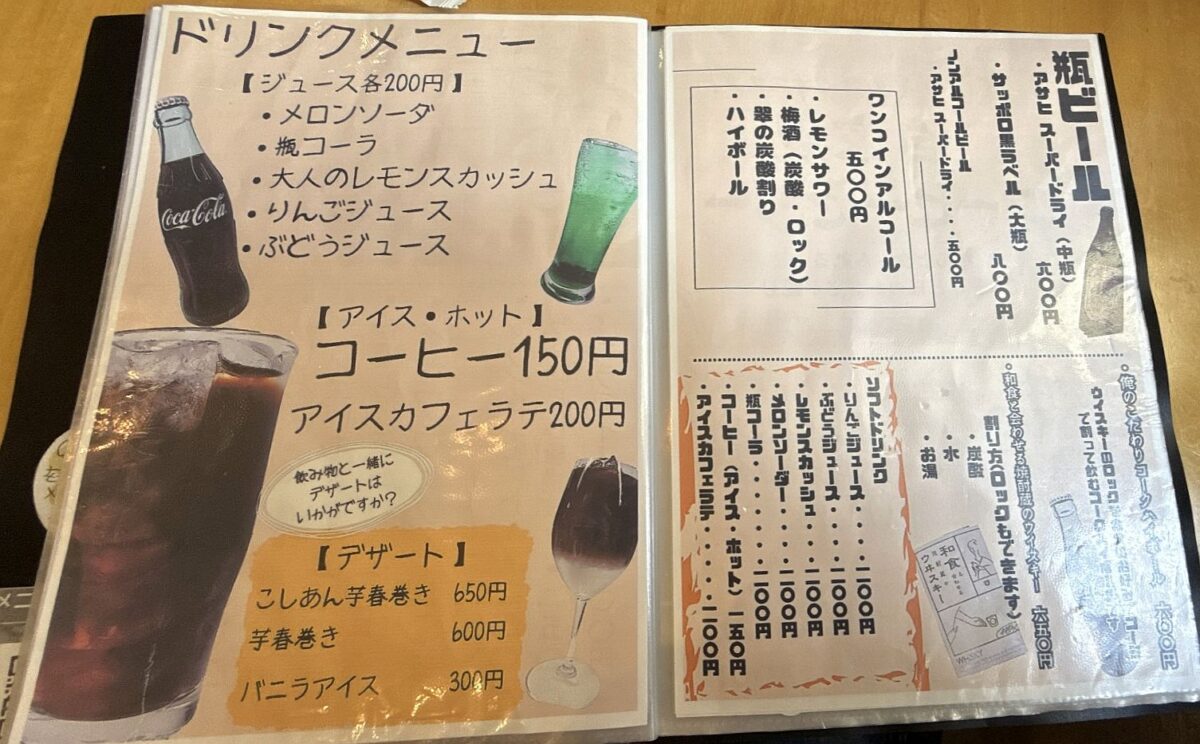 ドリンクメニュー
【ジュース各200円】
・メロンソーダ
・瓶コーラ
・大人のレモンスカッシュ
・りんごジュース
・ぶどうジュース
Coca-Cola
【アイス・ホット】
コーヒー150円
アイスカフェラテ200円
飲み物と一緒に
デザートは
いかがですか?
【デザート】
こしあん芋春巻き 650円
芋春巻き 600円
バニラアイス 300円
瓶ビール
・アサヒ スーパードライ(中瓶) 六〇〇円
・サッポロ黒ラベル(大瓶) 八〇〇円
ノンアルコールビール
・アサヒ スーパードライ・・・・五〇〇円
ワンコインアルコール
五〇〇円
・レモンサワー
・梅酒(炭酸・ロック)
・翠の炭酸割り
・ハイボール
・俺のこだわりコークハイボール 六〇〇円
ウイスキーのロック
て割って飲むコーク
・和食と合わせる焼酎蔵のウイスキー 六五〇円
割り方(ロックもできます)
・炭酸
・水
・お湯
和食
ウヰスキー
WHISKY
ソフトドリンク
・りんごジュース・・・・・二〇〇円
・ぶどうジュース・・・・・二〇〇円
・レモンスカッシュ・・・・二〇〇円
・メロンソーダー・・・・・二〇〇円
・瓶コーラ・・・・・・・・二〇〇円
・コーヒー(アイス・ホット)一五〇円
・アイスカフェラテ・・・・・・二〇〇円